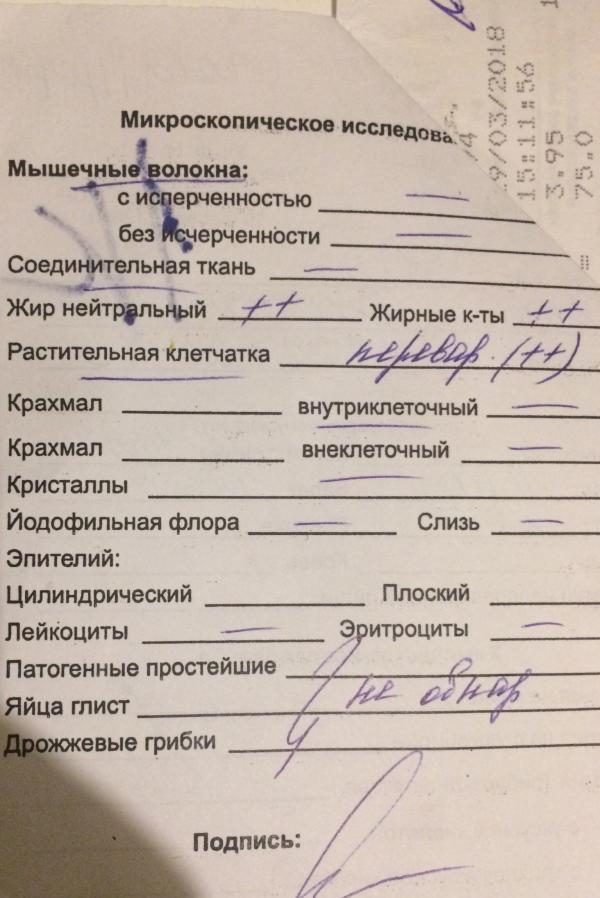 9/03/2018
15:11:56
3.95
75.0
=
Микроскопическое исследова
Мышечные волокна:
с исперченностью —
без исчерченности —
Соединительная ткань —
Жир нейтральный ++ Жирные к-ты ++
Растительная клетчатка перевар. (++)
Крахмал внутриклеточный —
Крахмал внеклеточный —
Кристаллы —
Йодофильная флора — Слизь —
Эпителий:
Цилиндрический Плоский
Лейкоциты — Эритроциты —
Патогенные простейшие
Яйца глист не обнар
Дрожжевые грибки
Подпись: